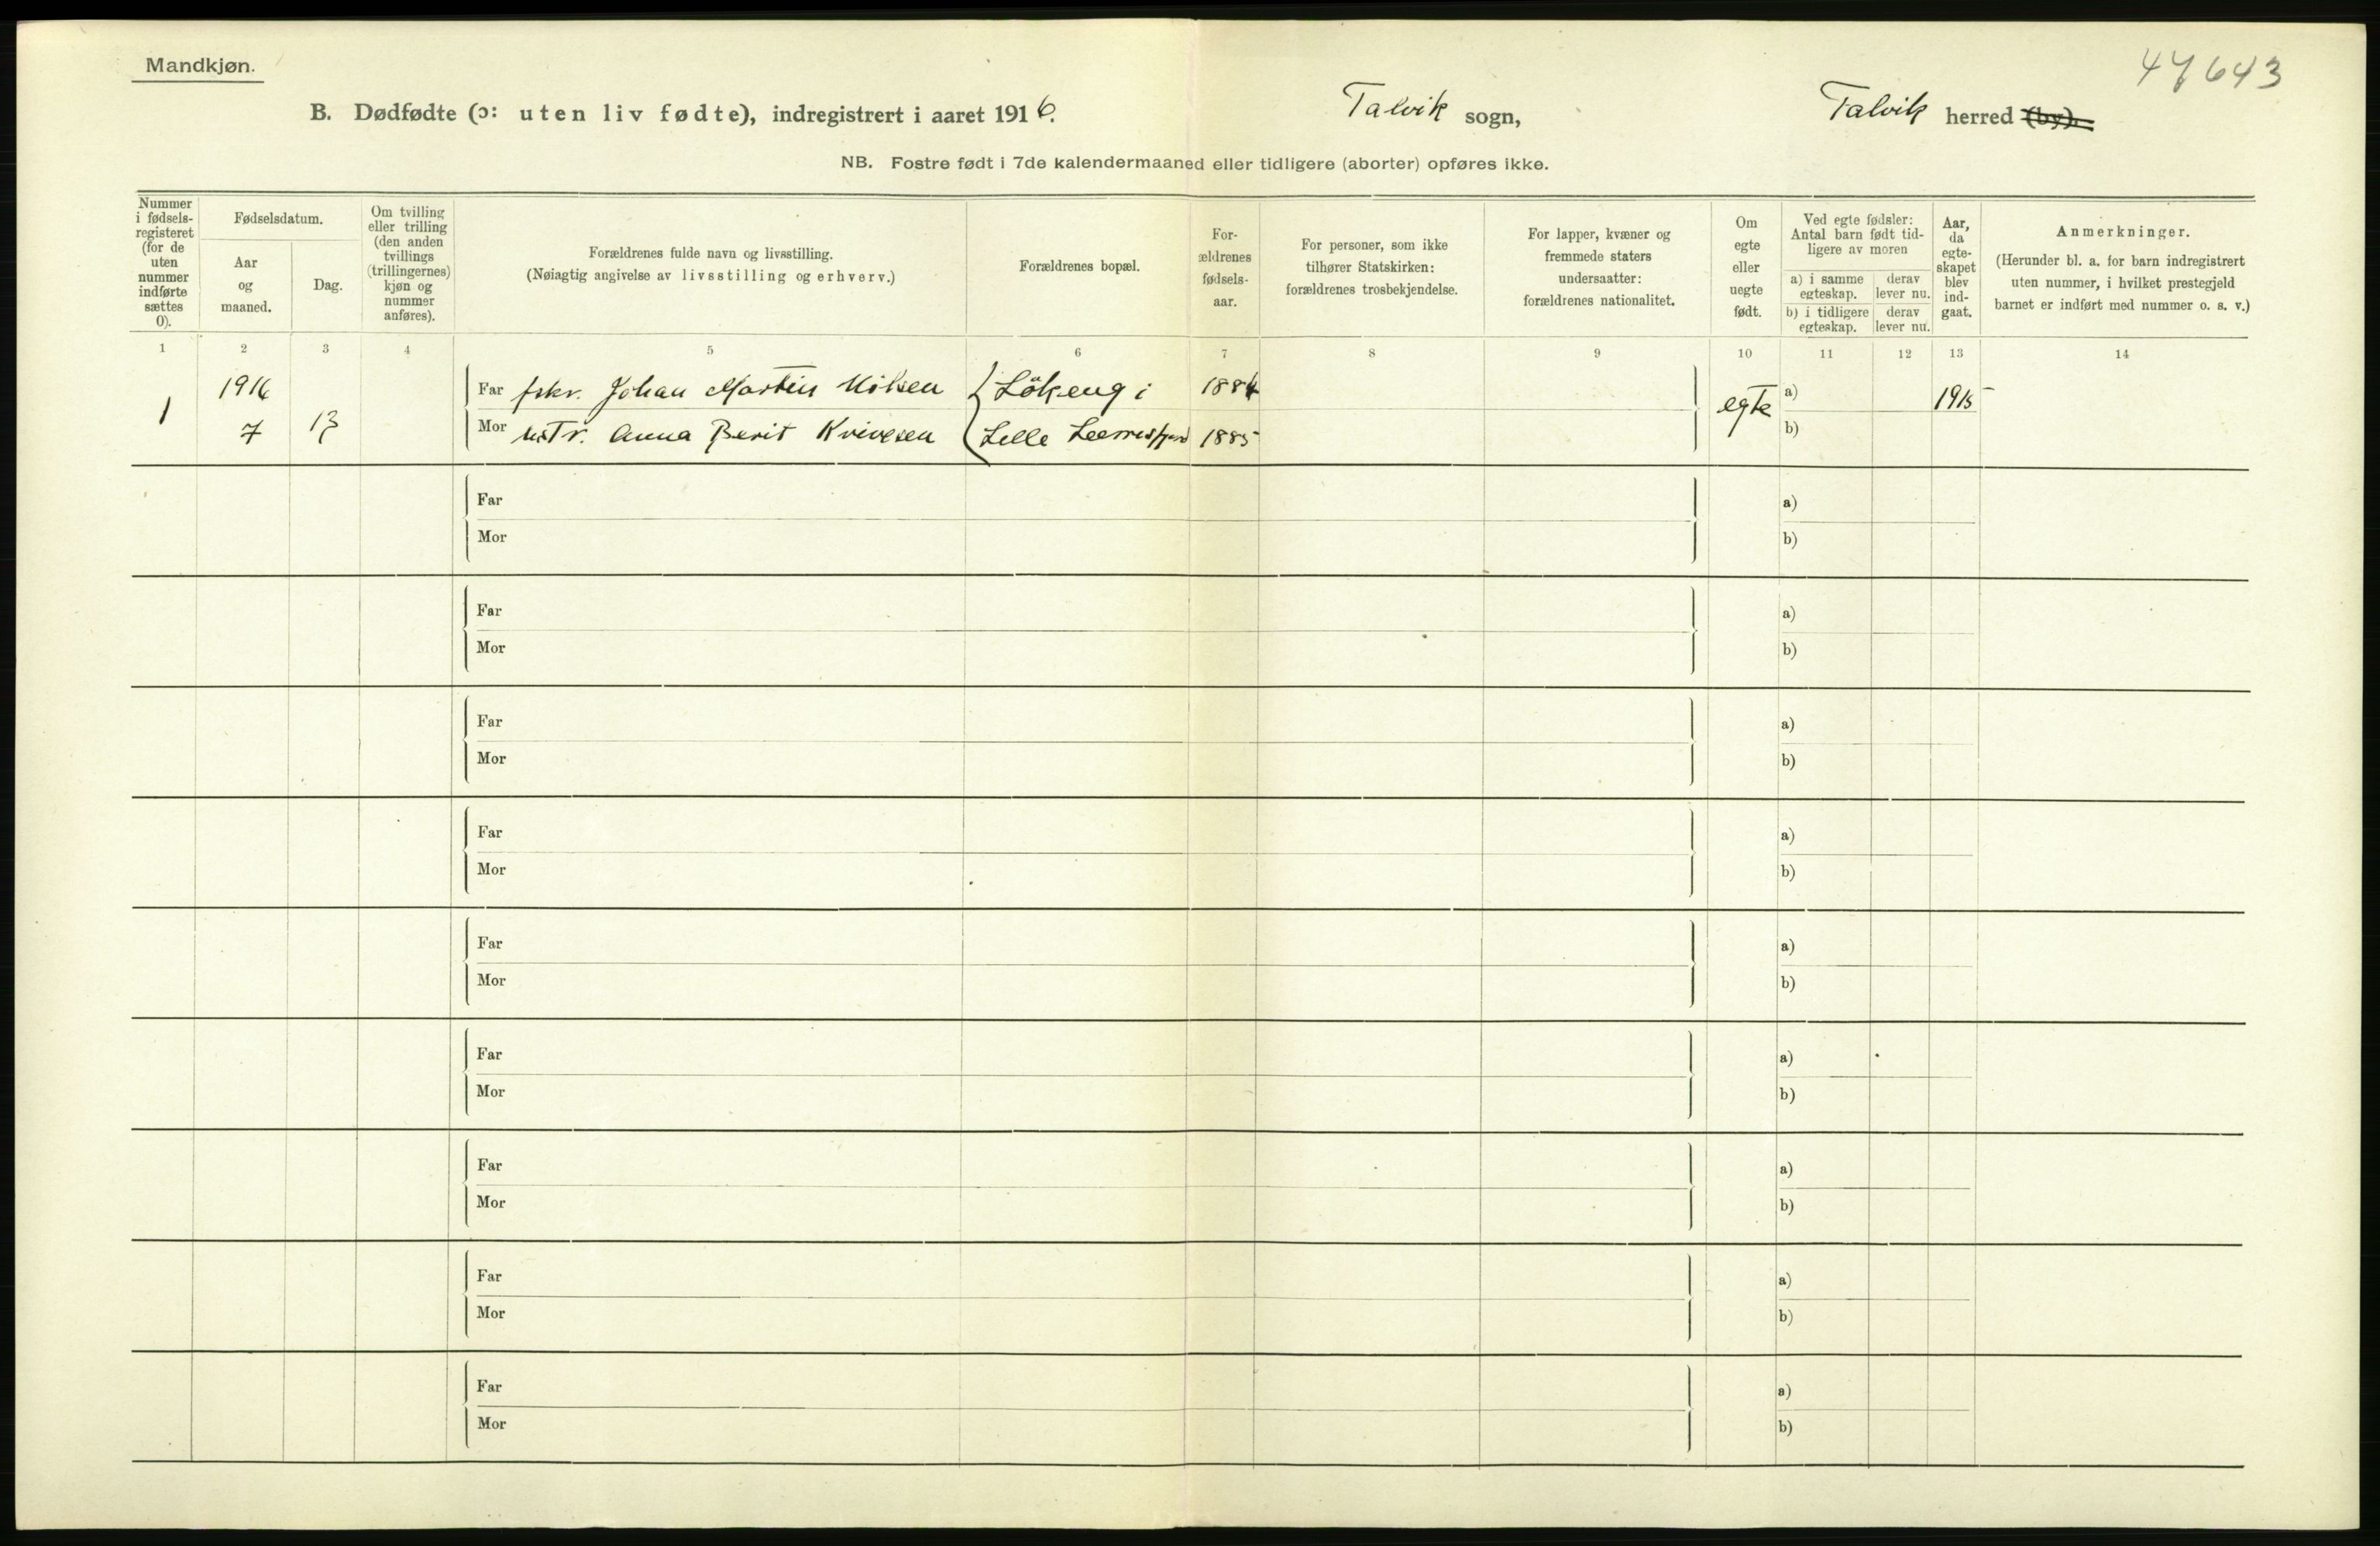 Mandkjøn.
47643
B. Dødfødte (ɔ: uten liv fødte), indregistrert i aaret 1916. Talvik sogn, Talvik herred (by).
NB. Fostre født i 7de kalendermaaned eller tidligere (aborter) opføres ikke.
Nummer
i fødsels-
registeret
(for de
uten
nummer
indførte
sættes
0).
Fødselsdatum.
Aar
og
maaned.
Dag.
Om tvilling
eller trilling
(den anden
tvillings
(trillingernes)
kjøn og
nummer
anføres).
Forældrenes fulde navn og livsstilling.
(Nøiagtig angivelse av livsstilling og erhverv.)
Forældrenes bopæl.
For-
ældrenes
fødsels-
aar.
For personer, som ikke
tilhører Statskirken:
forældrenes trosbekjendelse.
For lapper, kvæner og
fremmede staters
undersaatter:
forældrenes nationalitet.
Om
egte
eller
uegte
født.
Ved egte fødsler:
Antal barn født tid-
ligere av moren
a) i samme
egteskap.
derav
lever nu.
b) i tidligere
egteskap.
derav
lever nu.
Aar,
da
egte-
skapet
blev
ind-
gaat.
Anmerkninger.
(Herunder bl. a. for barn indregistrert
uten nummer, i hvilket prestegjeld
barnet er indført med nummer o. s. v.)
1 2 3 4 5 6 7 8 9 10 11 12 13 14
1916 Far fskr. Johan Martin Nilsen Lökeng i 1884 egte a) 1915
1 7 13 Mor hstr. Anna Berit Lille 1885 b)
Far a)
Mor b)
Far a)
Mor b)
Far a)
Mor b)
Far a)
Mor b)
Far a)
Mor b)
Far a)
Mor b)
Far a)
Mor b)
Far a)
Mor b)
Far a)
Mor b)